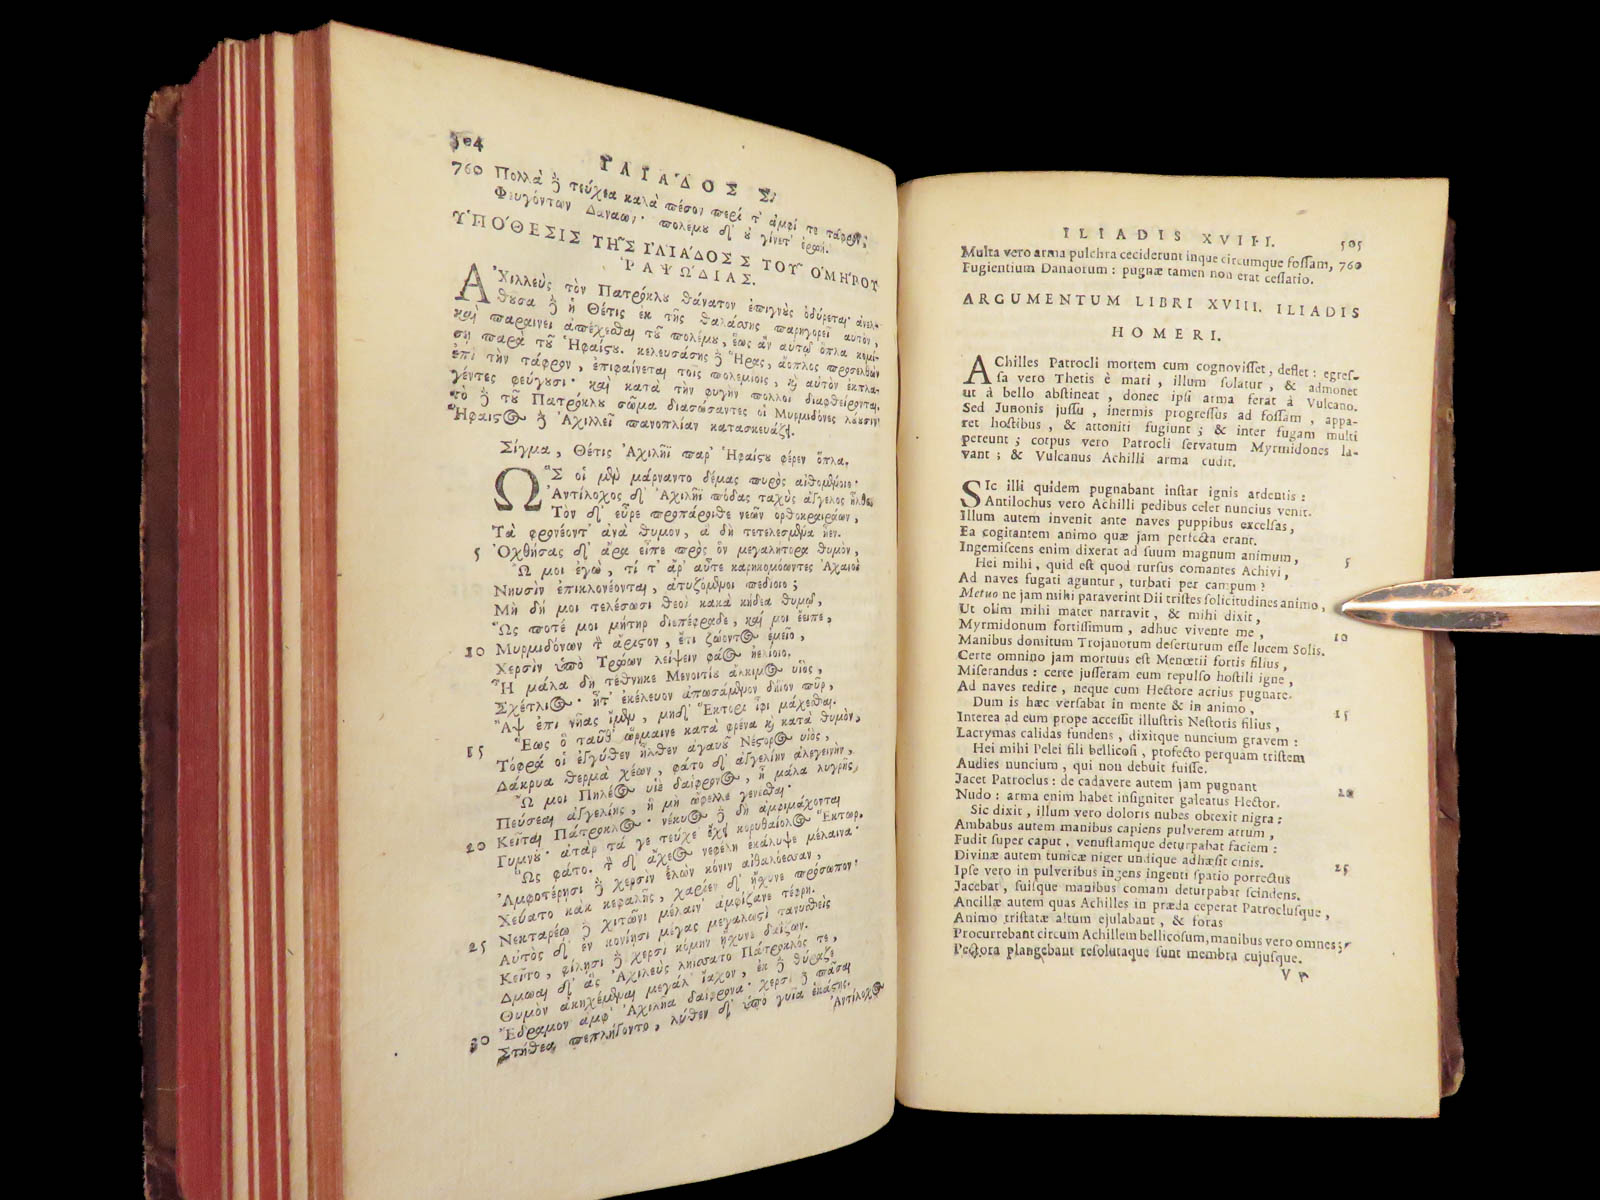 304
ΙΛΙΑΔΟΣ Σ.
760 Πολλὰ ϗ̀ τεύχεα καλὰ πέσον περί τ' ἀμφί τε τάφρον,
Φευγόντων Δαναῶν· πολέμου δ' οὐ γίνετ' ἐρωή.
ΥΠΟΘΕΣΙΣ ΤΗΣ ΙΛΙΑΔΟΣ Σ ΤΟΥ ΟΜΗΡΟΥ
ΡΑΨΩΔΙΑΣ.
ΑΧιλλεὺς τὸν Πατρόκλου θάνατον ἐπιγνοὺς ὀδύρεται· ἀνελ-
θοῦσα δὲ ἡ Θέτις ἐκ τῆς θαλάσσης παρηγορεῖ αὐτὸν,
καὶ παραινεῖ ἀπέχεσθαι τοῦ πολέμου, ἕως ἂν αὐτῷ ὅπλα κομί-
σῃ παρὰ τοῦ Ἡφαίστου. κελευσάσης δὲ Ἥρας, ἄοπλος προσελθὼν
ἐπὶ τὴν τάφρον, ἐπιφαίνεται τοῖς πολεμίοις, καὶ αὐτὸν ἐκπλα-
γέντες φεύγουσι· καὶ κατὰ τὴν φυγὴν πολλοὶ διαφθείρονται.
τὸ δὲ τοῦ Πατρόκλου σῶμα διασώσαντες οἱ Μυρμιδόνες λούουσιν·
Ἥφαιστος δὲ Ἀχιλλεῖ πανοπλίαν κατασκευάζει.
Σίγμα, Θέτις Ἀχιλῆϊ παρ' Ἡφαίστου φέρεν ὅπλα.
ΩΣ οἱ μὲν μάρναντο δέμας πυρὸς αἰθομένοιο·
Ἀντίλοχος δ' Ἀχιλῆϊ πόδας ταχὺς ἄγγελος ἦλθε.
Τὸν δ' εὗρε προπάροιθε νεῶν ὀρθοκραιράων,
Τὰ φρονέοντ' ἀνὰ θυμὸν, ἃ δὴ τετελεσμένα ἦεν.
5 Ὀχθήσας δ' ἄρα εἶπε πρὸς ὃν μεγαλήτορα θυμὸν,
Ὤ μοι ἐγὼ, τί τ' ἄρ' αὖτε καρηκομόωντες Ἀχαιοὶ
Νηυσὶν ἐπικλονέονται, ἀτυζόμενοι πεδίοιο;
Μὴ δή μοι τελέσωσι θεοὶ κακὰ κήδεα θυμῷ,
Ὥς ποτέ μοι μήτηρ διεπέφραδε, καί μοι ἔειπε,
10 Μυρμιδόνων τὸν ἄριστον, ἔτι ζώοντος ἐμεῖο,
Χερσὶν ὑπὸ Τρώων λείψειν φάος ἠελίοιο.
Ἦ μάλα δὴ τέθνηκε Μενοιτίου ἄλκιμος υἱὸς,
Σχέτλιος· ἦτ' ἐκέλευον ἀπωσάμενον δήϊον πῦρ,
Ἂψ ἐπὶ νῆας ἴμεν, μηδ' Ἕκτορι ἶφι μάχεσθαι.
15 Ἕως ὃ ταῦθ' ὥρμαινε κατὰ φρένα καὶ κατὰ θυμὸν,
Τόφρα οἱ ἐγγύθεν ἦλθεν ἀγαυοῦ Νέστορος υἱὸς,
Δάκρυα θερμὰ χέων, φάτο δ' ἀγγελίην ἀλεγεινὴν,
Ὤ μοι Πηλέος υἱὲ δαΐφρονος, ἦ μάλα λυγρῆς
Πεύσεαι ἀγγελίης, ἣ μὴ ὤφελλε γενέσθαι·
20 Κεῖται Πάτροκλος· νέκυος δὲ δὴ ἀμφιμάχονται
Γυμνοῦ· ἀτὰρ τά γε τεύχε' ἔχει κορυθαίολος Ἕκτωρ.
Ὣς φάτο. τὸν δ' ἄχεος νεφέλη ἐκάλυψε μέλαινα·
Ἀμφοτέρῃσι δὲ χερσὶν ἑλὼν κόνιν αἰθαλόεσσαν,
Χεύατο κὰκ κεφαλῆς, χαρίεν δ' ᾔσχυνε πρόσωπον·
25 Νεκταρέῳ δὲ χιτῶνι μέλαιν' ἀμφίζανε τέφρη.
Αὐτὸς δ' ἐν κονίῃσι μέγας μεγαλωστὶ τανυσθεὶς
Κεῖτο, φίλῃσι δὲ χερσὶ κόμην ᾔσχυνε δαΐζων.
Δμωαὶ δ' ἃς Ἀχιλεὺς ληίσσατο Πάτροκλός τε,
Θυμὸν ἀκηχέμεναι μεγάλ' ἴαχον, ἐκ δὲ θύραζε
30 Ἔδραμον ἀμφ' Ἀχιλῆα δαΐφρονα· χερσὶ δὲ πᾶσαι
Στήθεα πεπλήγοντο, λύθεν δ' ὑπὸ γυῖα ἑκάστης.
Ἀντίλοχος
ILIADIS XVIII. 505
Multa vero arma pulchra ceciderunt inque circumque fossam, 760
Fugientium Danaorum: pugnæ tamen non erat cessatio.
ARGUMENTUM LIBRI XVIII. ILIADIS
HOMERI.
AChilles Patrocli mortem cum cognovisset, deflet: egres-
sa vero Thetis è mari, illum solatur, & admonet
ut à bello abstineat, donec ipsi arma ferat à Vulcano.
Sed Junonis jussu, inermis progressus ad fossam, appa-
ret hostibus, & attoniti fugiunt; & inter fugam multi
pereunt; corpus vero Patrocli servatum Myrmidones la-
vant; & Vulcanus Achilli arma cudit.
SIc illi quidem pugnabant instar ignis ardentis:
Antilochus vero Achilli pedibus celer nuncius venit.
Illum autem invenit ante naves puppibus excelsas,
Ea cogitantem animo quæ jam perfecta erant.
Ingemiscens enim dixerat ad suum magnum animum, 5
Hei mihi, quid est quod rursus comantes Achivi,
Ad naves fugati aguntur, turbati per campum?
Metuo ne jam mihi paraverint Dii tristes solicitudines animo,
Ut olim mihi mater narravit, & mihi dixit,
Myrmidonum fortissimum, adhuc vivente me, 10
Manibus domitum Trojanorum deserturum esse lucem Solis.
Certe omnino jam mortuus est Menœtii fortis filius,
Miserandus: certe jusseram eum repulso hostili igne,
Ad naves redire, neque cum Hectore acrius pugnare.
Dum is hæc versabat in mente & in animo, 15
Interea ad eum prope accessit illustris Nestoris filius,
Lacrymas calidas fundens, dixitque nuncium gravem:
Hei mihi Pelei fili bellicosi, profecto perquam tristem
Audies nuncium, qui non debuit fuisse.
Jacet Patroclus: de cadavere autem jam pugnant 20
Nudo: arma enim habet insigniter galeatus Hector.
Sic dixit, illum vero doloris nubes obtexit nigra:
Ambabus autem manibus capiens pulverem atrum,
Fudit super caput, venustamque deturpabat faciem:
Divinæ autem tunicæ niger undique adhæsit cinis. 25
Ipse vero in pulveribus ingens ingenti spatio porrectus
Jacebat, suisque manibus comam deturpabat scindens.
Ancillæ autem quas Achilles in præda ceperat Patroclusque,
Animo tristatæ altum ejulabant, & foras
Procurrebant circum Achillem bellicosum, manibus vero omnes
Pectora plangebant resolutaque sunt membra cujusque.
V